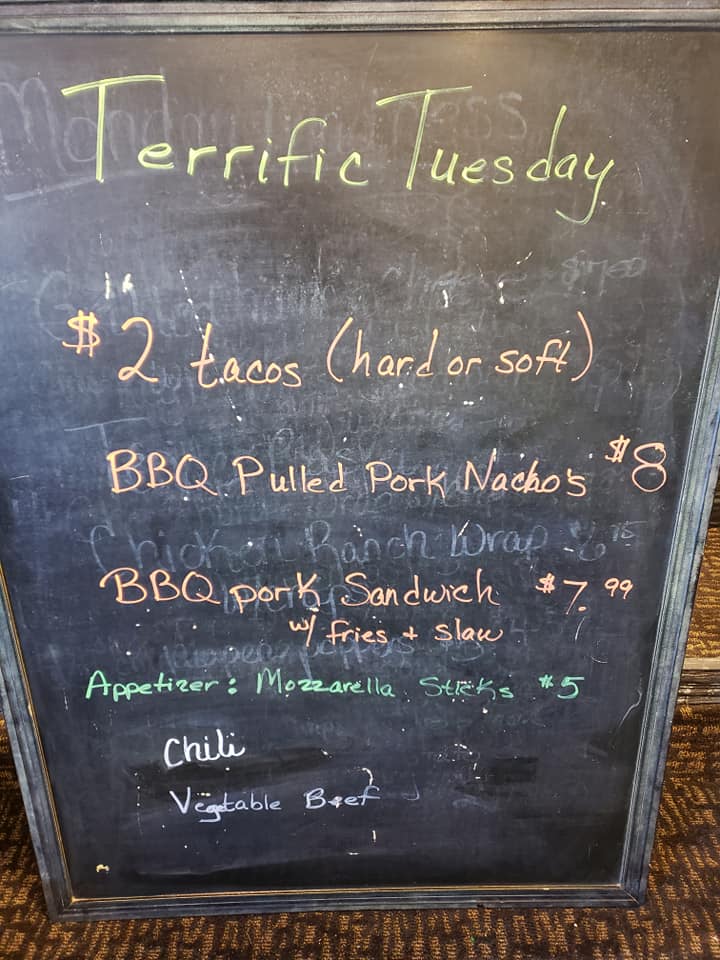 Terrific Tuesday
$2 tacos (hard or soft)
BBQ Pulled Pork Nacho's $8
Chicken Ranch Wrap
BBQ pork Sandwich $7.99
w/ fries + slaw
Appetizer: Mozzarella Sticks $5
Chili
Vegetable Beef